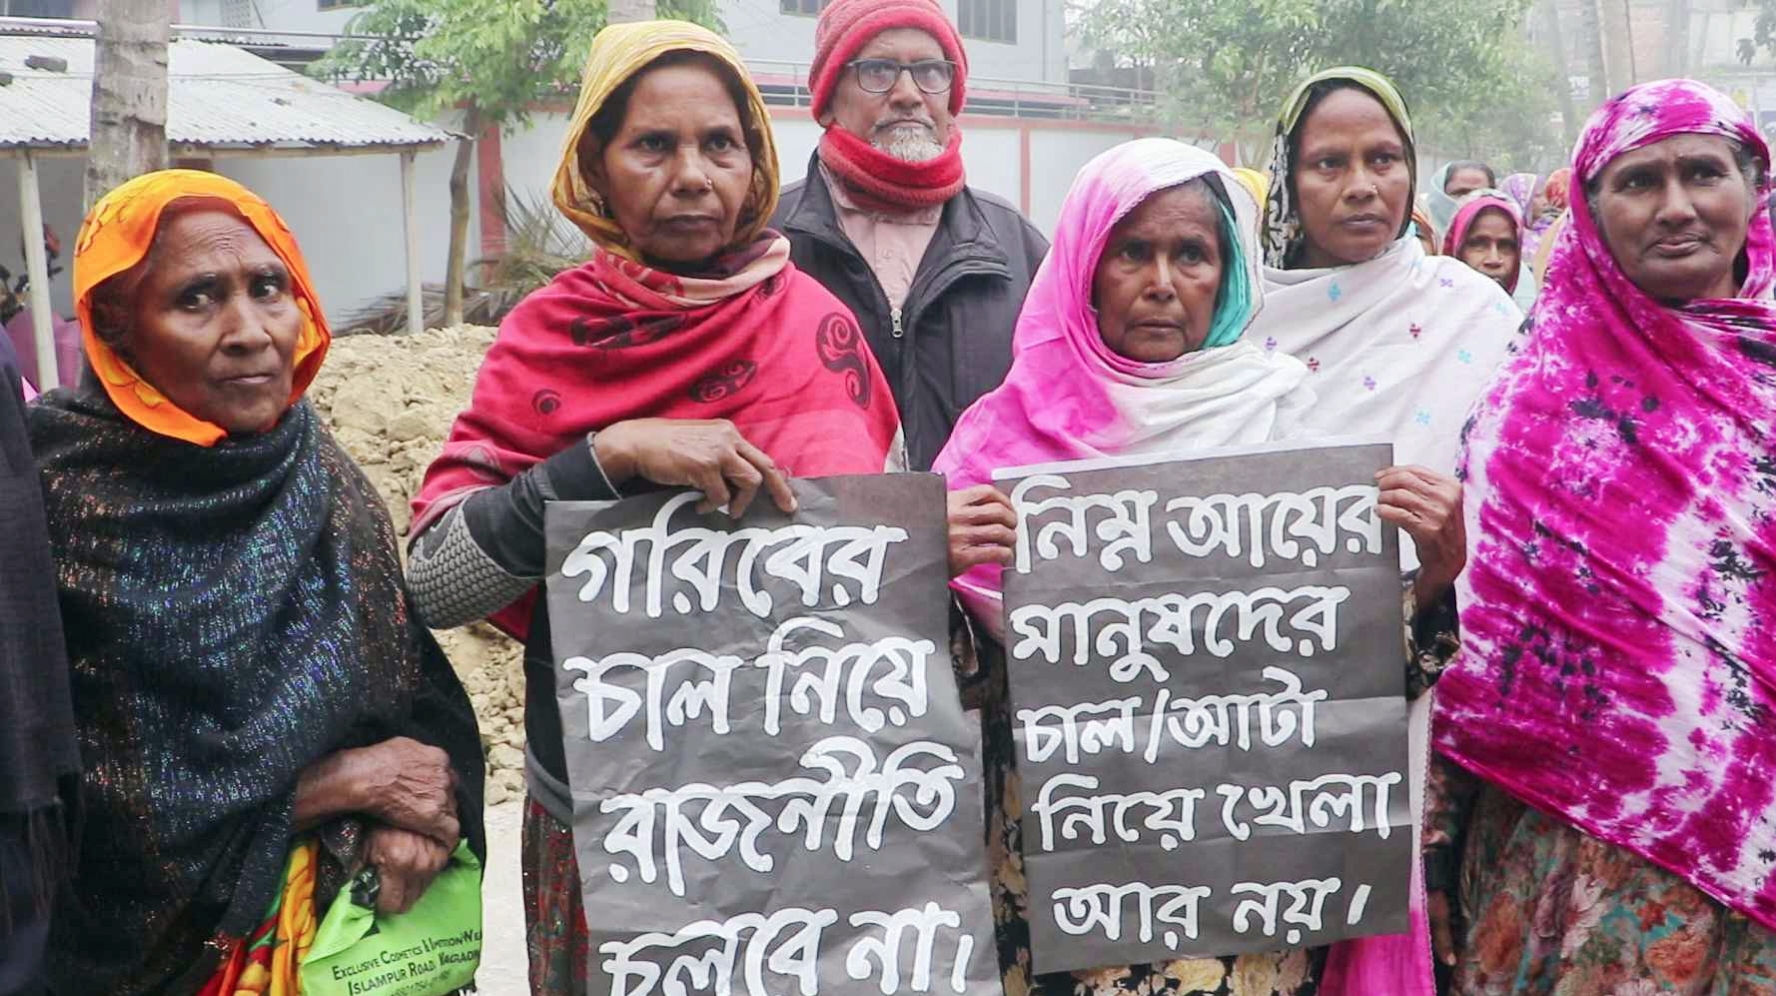 গরিবের
চাল নিয়ে
রাজনীতি
চলবে না।
নিম্ন আয়ের
মানুষদের
চাল/আটা
নিয়ে খেলা
আর নয়।
EXCLUSIVE COSMETICS
ISLAMPUR ROAD